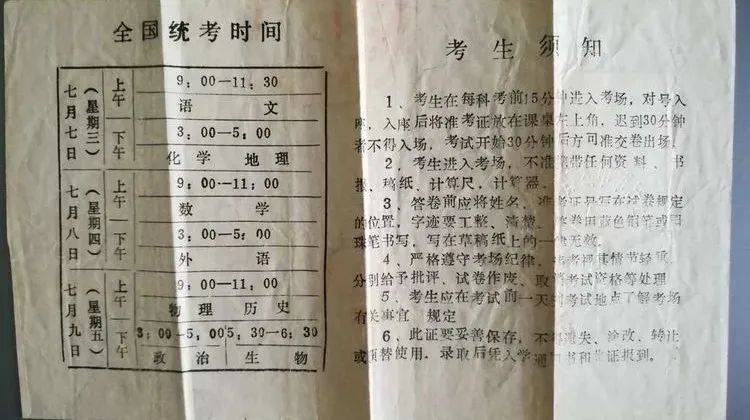 全国统考时间
七月七日（星期三） 上午 9：00—11：30
语文
下午 3：00—5：00
化学 地理
七月八日（星期四） 上午 9：00—11：00
数学
下午 3：00—5：00
外语
七月九日（星期五） 上午 9：00—11：00
物理 历史
下午 3：00—5：00 5：30—6：30
政治 生物
考生须知
1、考生在每科考前15分钟进入考场，对号入
座，入座后将准考证放在课桌左上角，迟到30分钟
者不得入场，考试开始30分钟后方可准交卷出场。
2、考生进入考场，不准携带任何资料、书
报、稿纸、计算尺，计算器。
3、答卷前应将姓名、准考证号写在试卷规定
的位置，字迹要工整、清楚，答卷用蓝色钢笔或圆
珠笔书写，写在草稿纸上的一律无效。
4、严格遵守考场纪律，情节轻重
分别给予批评、试卷作废、取消考试资格等处理
5、考生应在考试前一天到考试地点了解考场
有关事宜 规定
6、此证要妥善保存，不得遗失、涂改、转让
或顶替使用。录取后凭入学通知书和此证报到。